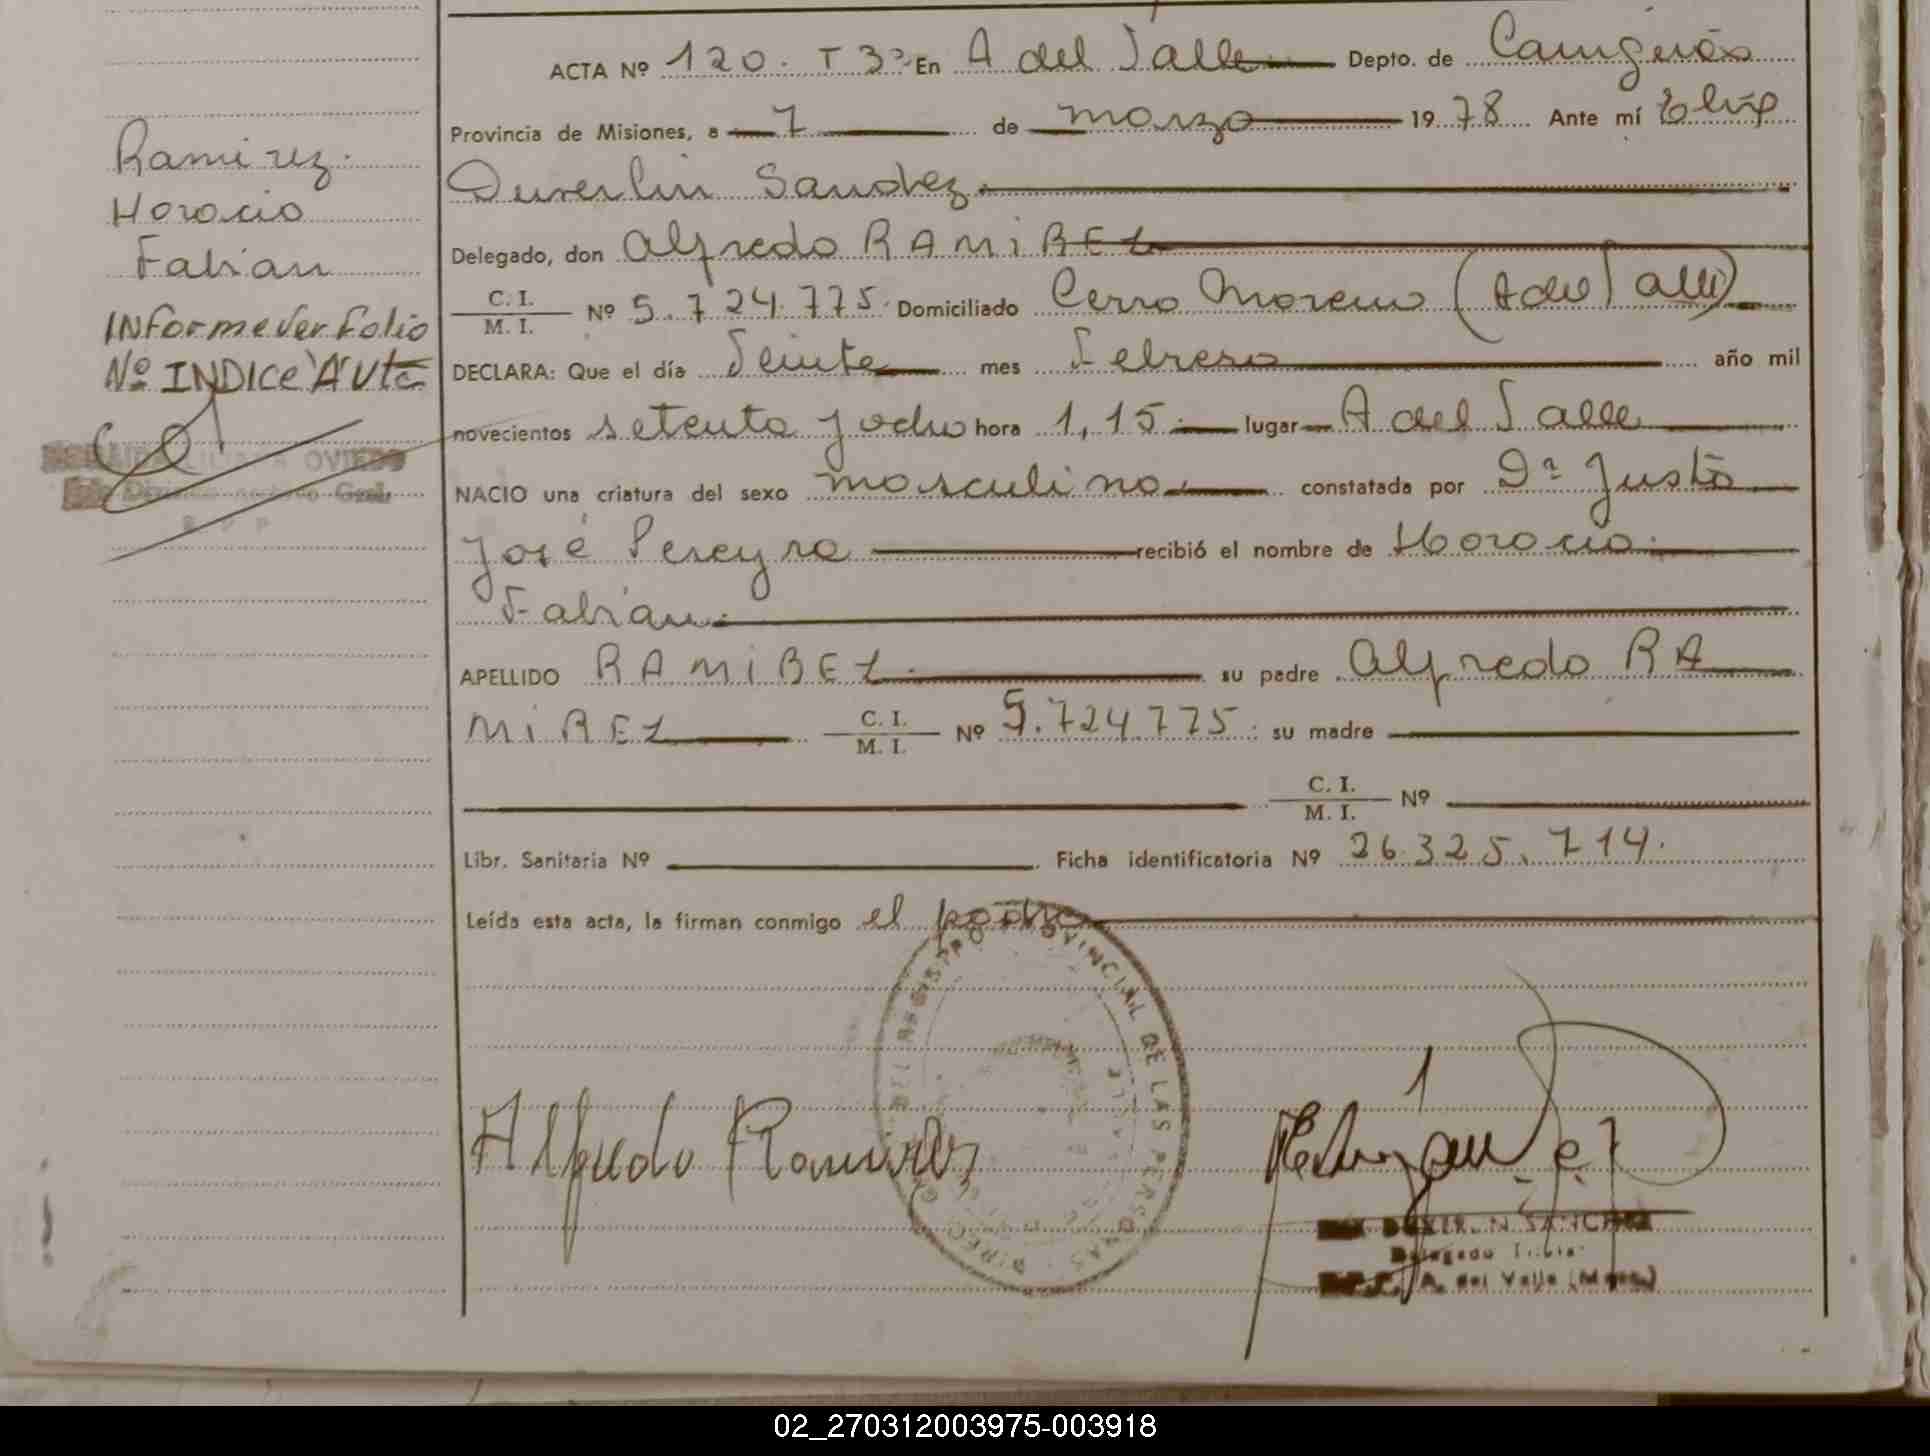 ACTA Nº 120. T 3º En A del Valle Depto. de Cainguás
Provincia de Misiones, a 7 de marzo 1978 Ante mí
Sanchez.
Delegado, don Alfredo RAMIREZ
C. I. / M. I. Nº 5.724.775. Domiciliado Cerro Moreno (A del Valle)
DECLARA: Que el día Veinte mes Febrero año mil
novecientos setenta y ocho hora 1,15 lugar A del Valle
NACIO una criatura del sexo masculino constatada por Dª Justa
José Pereyra recibió el nombre de Horacio
Fabián
APELLIDO RAMIREZ su padre Alfredo RA
MIREZ C. I. / M. I. Nº 5.724.775 su madre
C. I. / M. I. Nº
Libr. Sanitaria Nº Ficha identificatoria Nº 26.325.714.
Leída esta acta, la firman conmigo el padre
Ramirez
Horacio
Fabian
INforme ver folio
Nº INDICE "A" Vta
OVIEDO
REGISTRO PROVINCIAL DE LAS PERSONAS
Alfredo Ramirez
SANCHEZ
Delegado
A. del Valle (Mnes.)
02_270312003975-003918